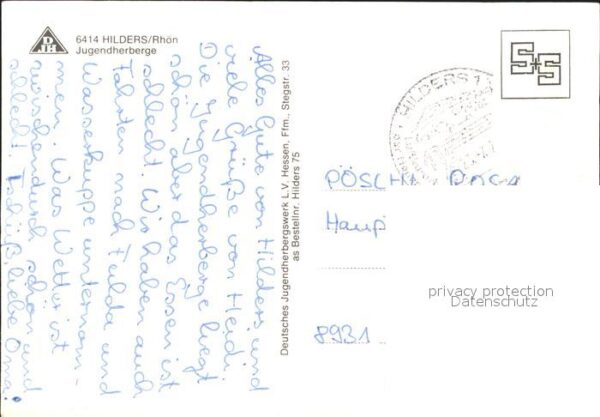 6414 HILDERS/Rhön
Jugendherberge
DJH
Alles Gute von Hilders, und
viele Grüße von Heidi.
Die Jugendherberge liegt
schön aber das Essen ist
schlecht. Wir haben auch
Fahrten nach Fulda und
Wasserkuppe unternom-
men. Was Wetter ist
zwischendurch schön und
schlecht. Tschüß, liebe Oma
Deutsches Jugendherbergswerk L.V. Hessen, Ffm., Stegstr. 33
as Bestellnr. Hilders 75
HILDERS 1
S+S
PÖSCHL ROSA
Haup
privacy protection
Datenschutz
8931